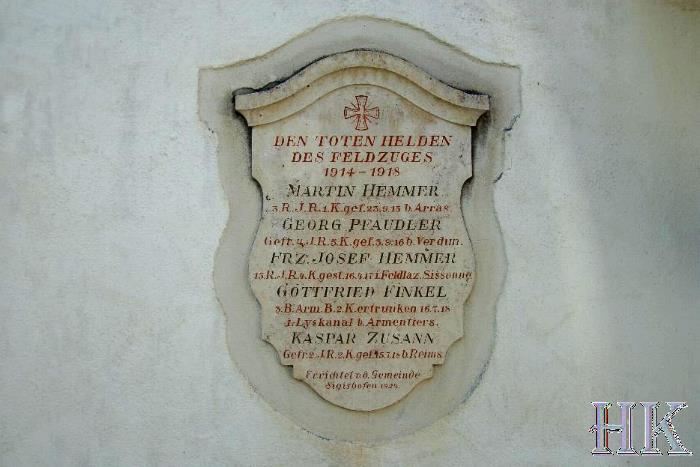 DEN TOTEN HELDEN
DES FELDZUGES
1914 – 1918
MARTIN HEMMER
3.R.J.R.4.K.gef.25.9.15 b.Arras.
GEORG PFAUDLER
Gefr. 4.J.R.5.K.gef.3.9.16 b.Verdun.
FRZ. JOSEF HEMMER
15.R.J.R.4.K.gest.16.4.17 i.Feldlaz.Sissonne
GOTTFRIED FINKEL
3.B.Arm.B.2.K.ertrunken 16.7.18
i.Lyskanal b.Armentiers.
KASPAR ZUSANN
Gefr.2.J.R.2.K.gef.15.7.18 b.Reims
Errichtet v.d. Gemeinde
Sigishofen
HK